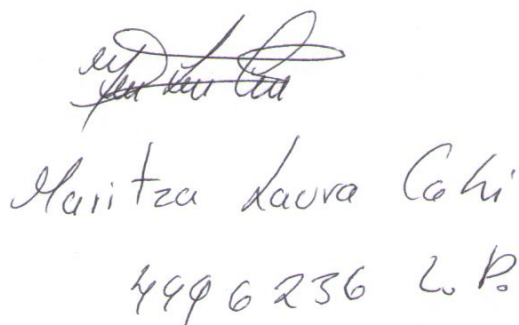 Maritza Laura Cahi
4996236 L.P.